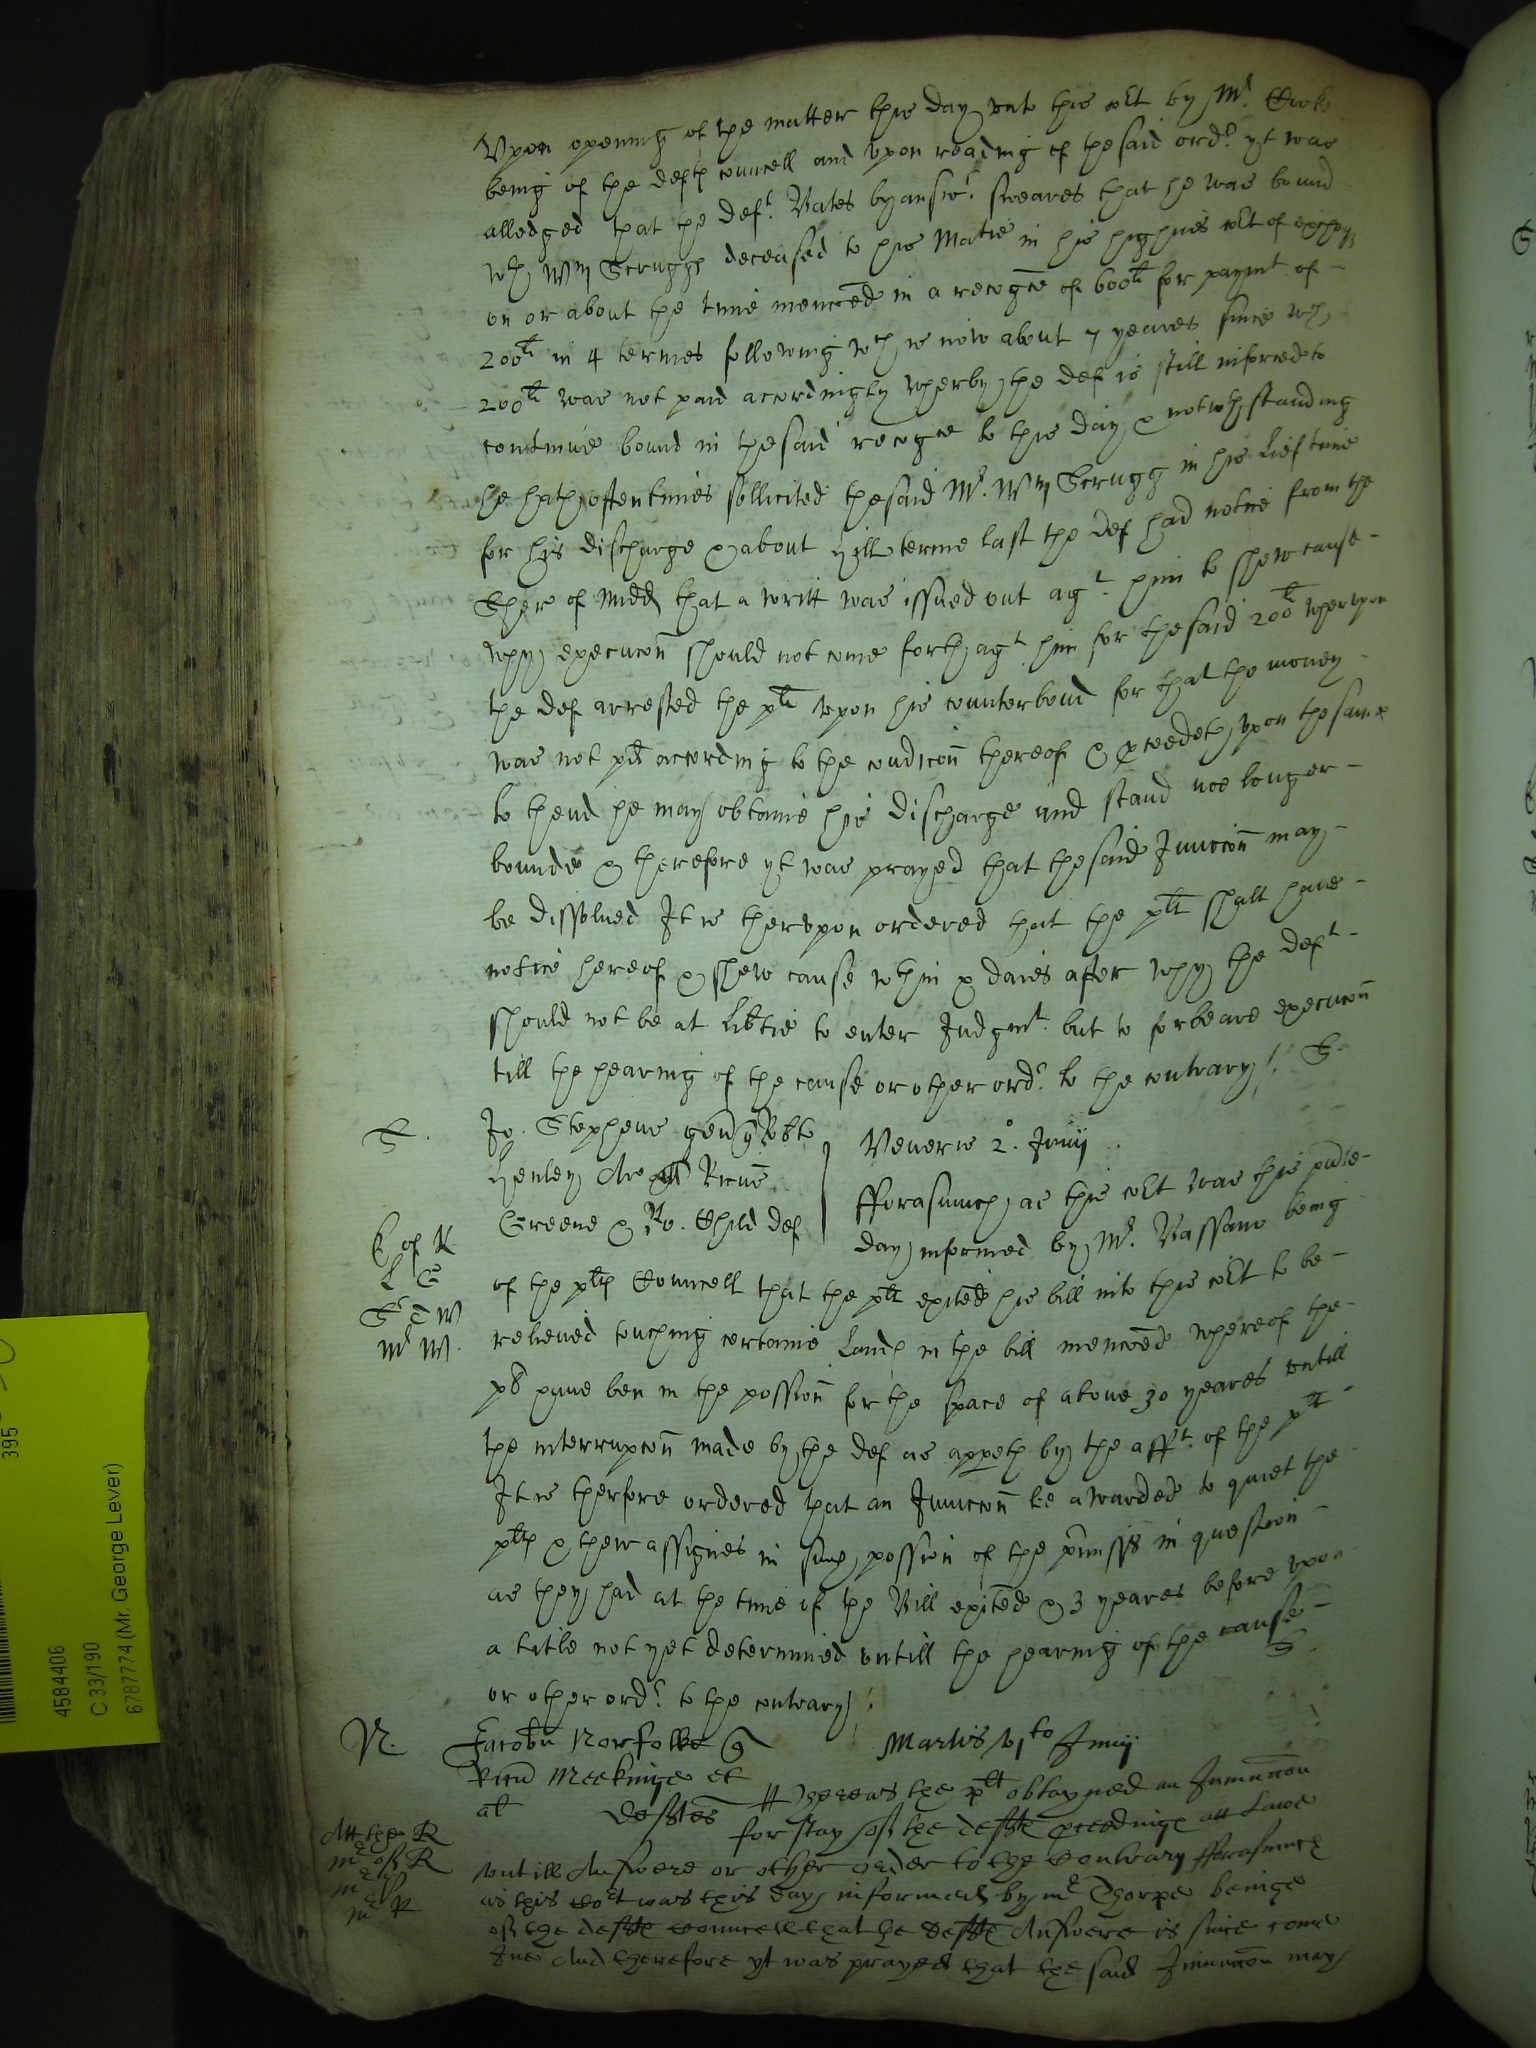 Vpon opening of the matter this day vnto this coͬt by Mͬ Cooke
being of the defts councell and vpon reading of the said ordͬ yt was
alledged that the defͭ Bates by answͬ sweares that he was bound
wͭʰ Wm Scruggs deceased to his Maᵗⁱᵉ in his highnes coͬt of excheqͬ
on or about the time menc̄oed in a recogce of 600ˡⁱ for paymͭ of
200ˡⁱ in 4 termes following wᶜʰ is now about 7 yeares since wᶜʰ
200ˡⁱ was not paid accordingly wherby the def is still inforced to
continue bound in the said recogce to this day & notwᵗʰstanding
he hath oftentimes sollicited the said Mͬ Wm Scrugg in his lief time
for his discharge & about Hill terme last the def had notice from the
Sher of Midd that a writt was issued out agͭ him to shew cause
why execuc̄on should not come forth agͭ him for the said 200ˡⁱ wherupon
the def arrested the plt vpon his counterbond for that the money
was not pd according to the condic̄on thereof & pceedeth vpon the same
to thend he may obtaine his discharge and stand noe longer
bounde & therefore yt was prayed that the said Iniuncc̄on may
be dissolued It is therupon ordered that the plt shall haue
notice hereof & shew cause wᵗʰin x daies after why the defͭ
should not be at libtie to enter Iudgmͭ but to forbeare execuc̄on
till the hearing of the cause or other ordͬ to the contrary
S. Jo. Stephens gen & Robte
Henley Ar plt Ricūs
Greene & Ro. Child def
Veneris 2° Junij
Forasmuch as this coͬt was this pñte
day informed by Mͬ Vassam being
of the plts Councell that the plt exited his bill into this coͬt to be
relieued touching certaine Lands in the bill menc̄oed whereof the
plts haue ben in the possion for the space of aboue 30 yeares vntill
the interrupc̄on made by the def as appeth by the affͭ of the plt
It is therfore ordered that an Iniuncc̄on be awarded to quiet the
plts & their assignes in such possion of the p̄misses in question
as they had at the time of the Bill exited & 3 yeares before vpon
a title not yet determined vntill the hearing of the cause
or other ordͬ to the contrary
N. Jacobū Norfolke q
Ricū Meekinge et
al defftes
Martis vjᵗᵒ Junij
Whereas the plt obtayned an Iniuncc̄on
for stay of the deffts pceedinges att Lawe
vntill Answere or other order to the Contrary Fforasmuch
as this coͬt was this day informed by Mͬ Thorpe beinge
of the deffts Councell that the deffts Answere is since come
Ine And therefore yt was prayed that the said Iniuncc̄on may
395
4584406
C 33/190
67877774 (Mr. George Lever)